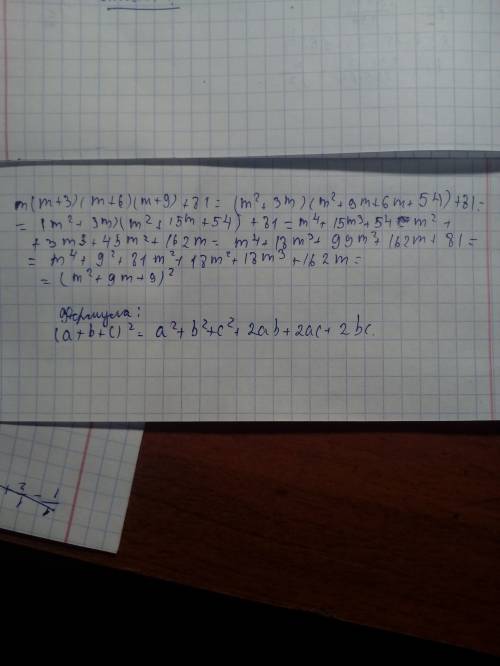 m(m+3)(m+6)(m+9)+81= (m²+3m)(m²+9m+6m+54)+81=
= (m²+3m)(m²+15m+54)+81=m⁴+15m³+54m²+
+3m³+45m²+162m= m⁴+18m³+99m²+162m+81=
= m⁴+9²+81m²+18m²+18m³+162m=
= (m²+9m+9)²
Формула:
(a+b+c)²= a²+b²+c²+2ab+2ac+2bc.